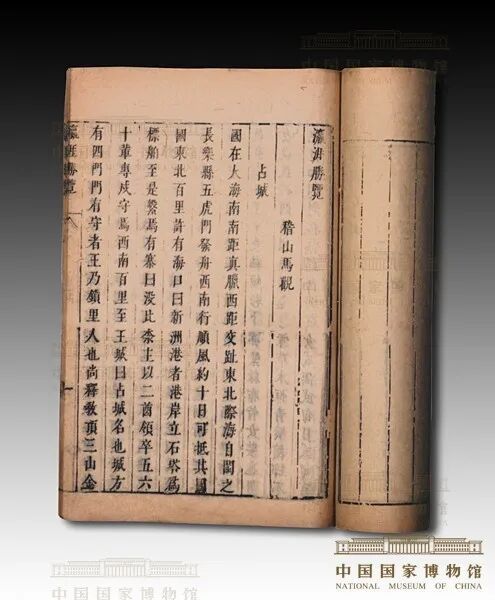 瀛涯勝覽
稽山馬觀
占城
國在大海南南距真臘西距交趾東北際海自閩之
長樂縣五虎門發舟西南行順風約十日可抵其國
國東北百里許有海口曰新洲港者港岸立石塔爲
標舶至是繫焉有寨曰設比柰主以二酋領卒五六
十輩專戍守焉西南百里至王城曰占城名也城方
有四門門有守者王乃鎖里人也尚釋敎頂三山金
瀛涯勝覽
一
中国国家博物馆
中国国家博物馆
NATIONAL MUSEUM OF CHINA
中国国家博物馆